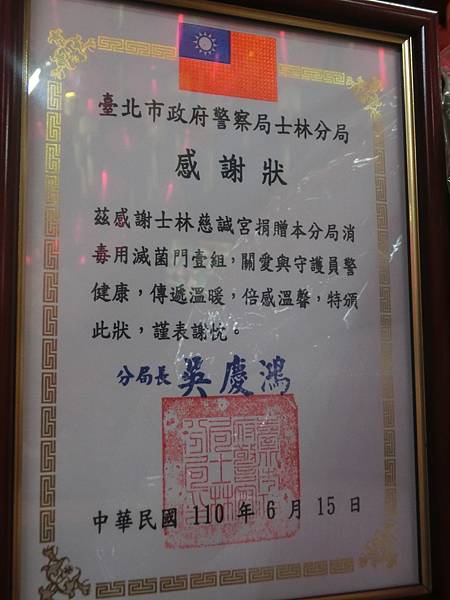 臺北市政府警察局士林分局
感謝狀
茲感謝士林慈諴宮捐贈本分局消
毒用滅菌門壹組，關愛與守護員警
健康，傳遞溫暖，倍感溫馨，特頒
此狀，謹表謝忱。
分局長 吳慶鴻
中華民國 110 年 6 月 15 日